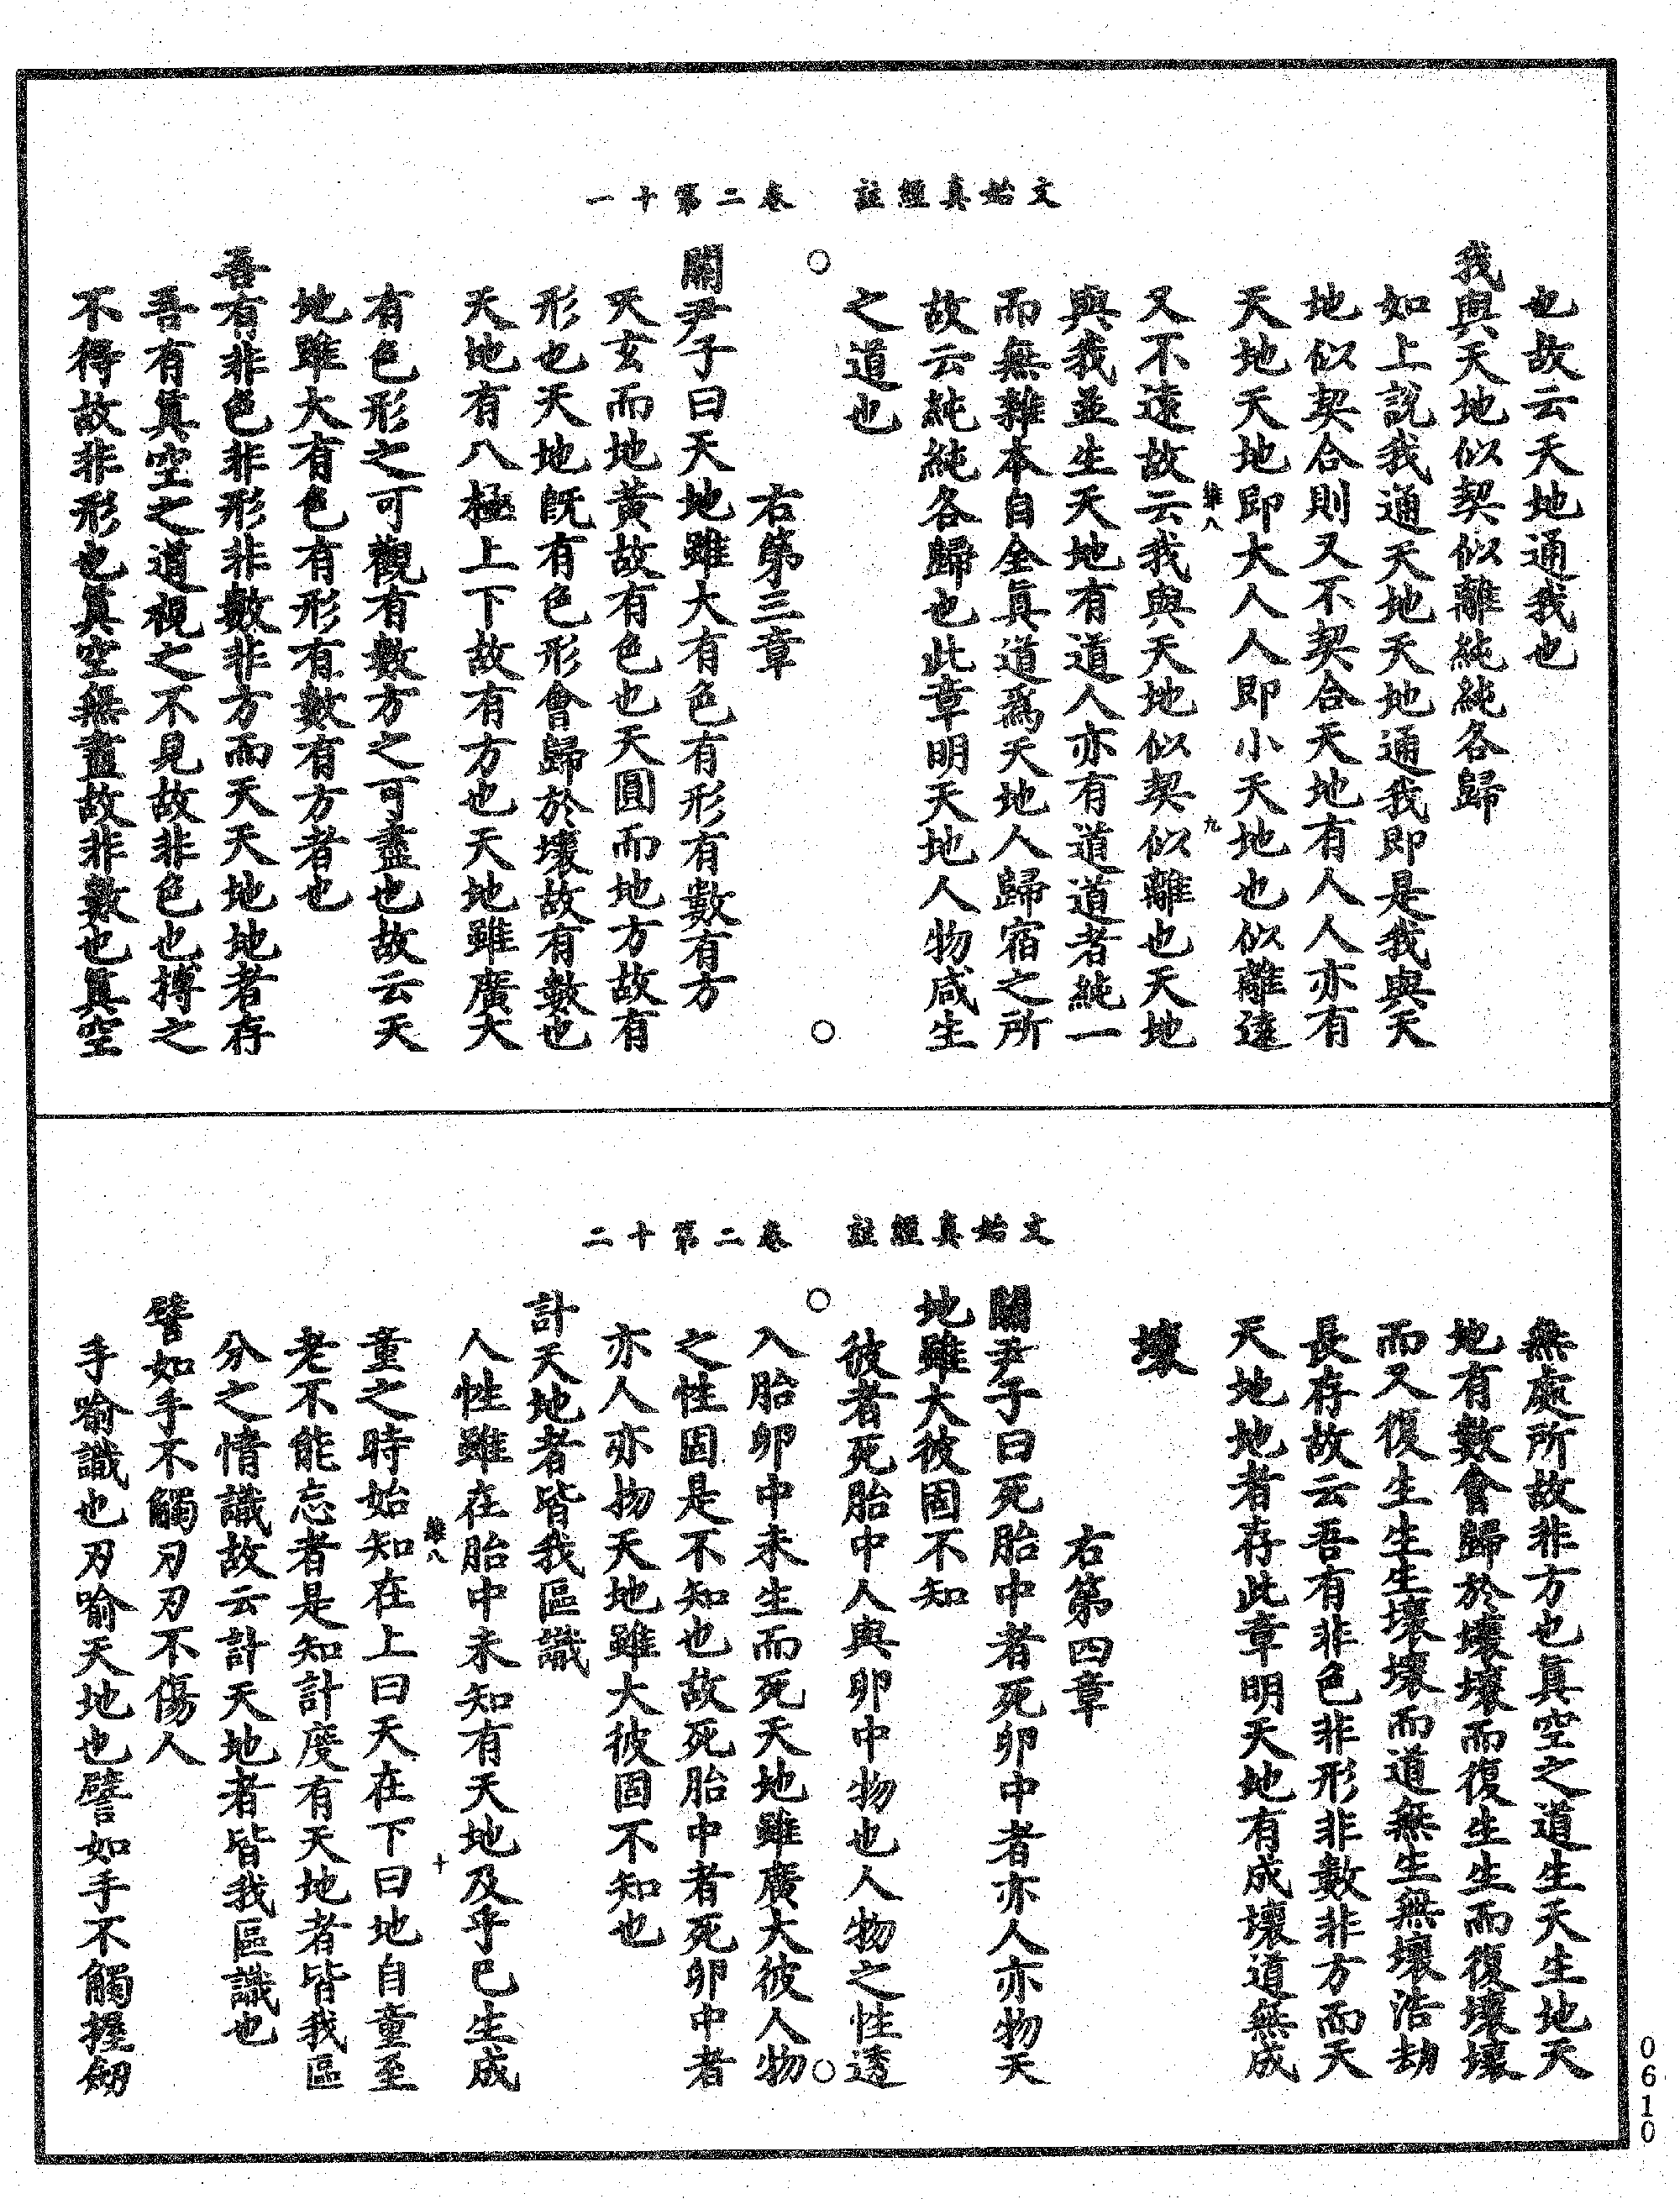 文始真經註　卷二第十一
也故云天地通我也
我與天地似契似離純純各歸
如上說我通天地天地通我即是我與天
地似契合則又不契合天地有人人亦有
天地天地即大人人即小天地也似離遠
又不遠故云我與天地似契似離也天地
雖八　九
與我並生天地有道人亦有道道者純一
而無雜本自全眞道爲天地人歸宿之所
故云純純各歸也此章明天地人物咸生
之道也
右第三章
關尹子曰天地雖大有色有形有數有方
天玄而地黃故有色也天圓而地方故有
形也天地旣有色形會歸於壞故有數也
天地有八極上下故有方也天地雖廣大
有色形之可觀有數方之可盡也故云天
地雖大有色有形有數有方者也
吾有非色非形非數非方而天天地地者存
吾有眞空之道視之不見故非色也搏之
不得故非形也眞空無盡故非數也眞空
文始真經註　卷二第十二
無處所故非方也眞空之道生天生地天
地有數會歸於壞壞而復生生而復壞壞
而又復生生生壞壞而道無生無壞浩劫
長存故云吾有非色非形非數非方而天
天地地者存此章明天地有成壞道無成
壞
右第四章
關尹子曰死胎中者死卵中者亦人亦物天
地雖大彼固不知
彼者死胎中人與卵中物也人物之性透
入胎卵中未生而死天地雖廣大彼人物
之性固是不知也故死胎中者死卵中者
亦人亦物天地雖大彼固不知也
計天地者皆我區識
人性雖在胎中未知有天地及乎巳生成
雖八　十
童之時始知在上曰天在下曰地自童至
老不能忘者是知計度有天地者皆我區
分之情識故云計天地者皆我區識也
譬如手不觸刃刃不傷人
手喻識也刃喻天地也譬如手不觸握劒
0610